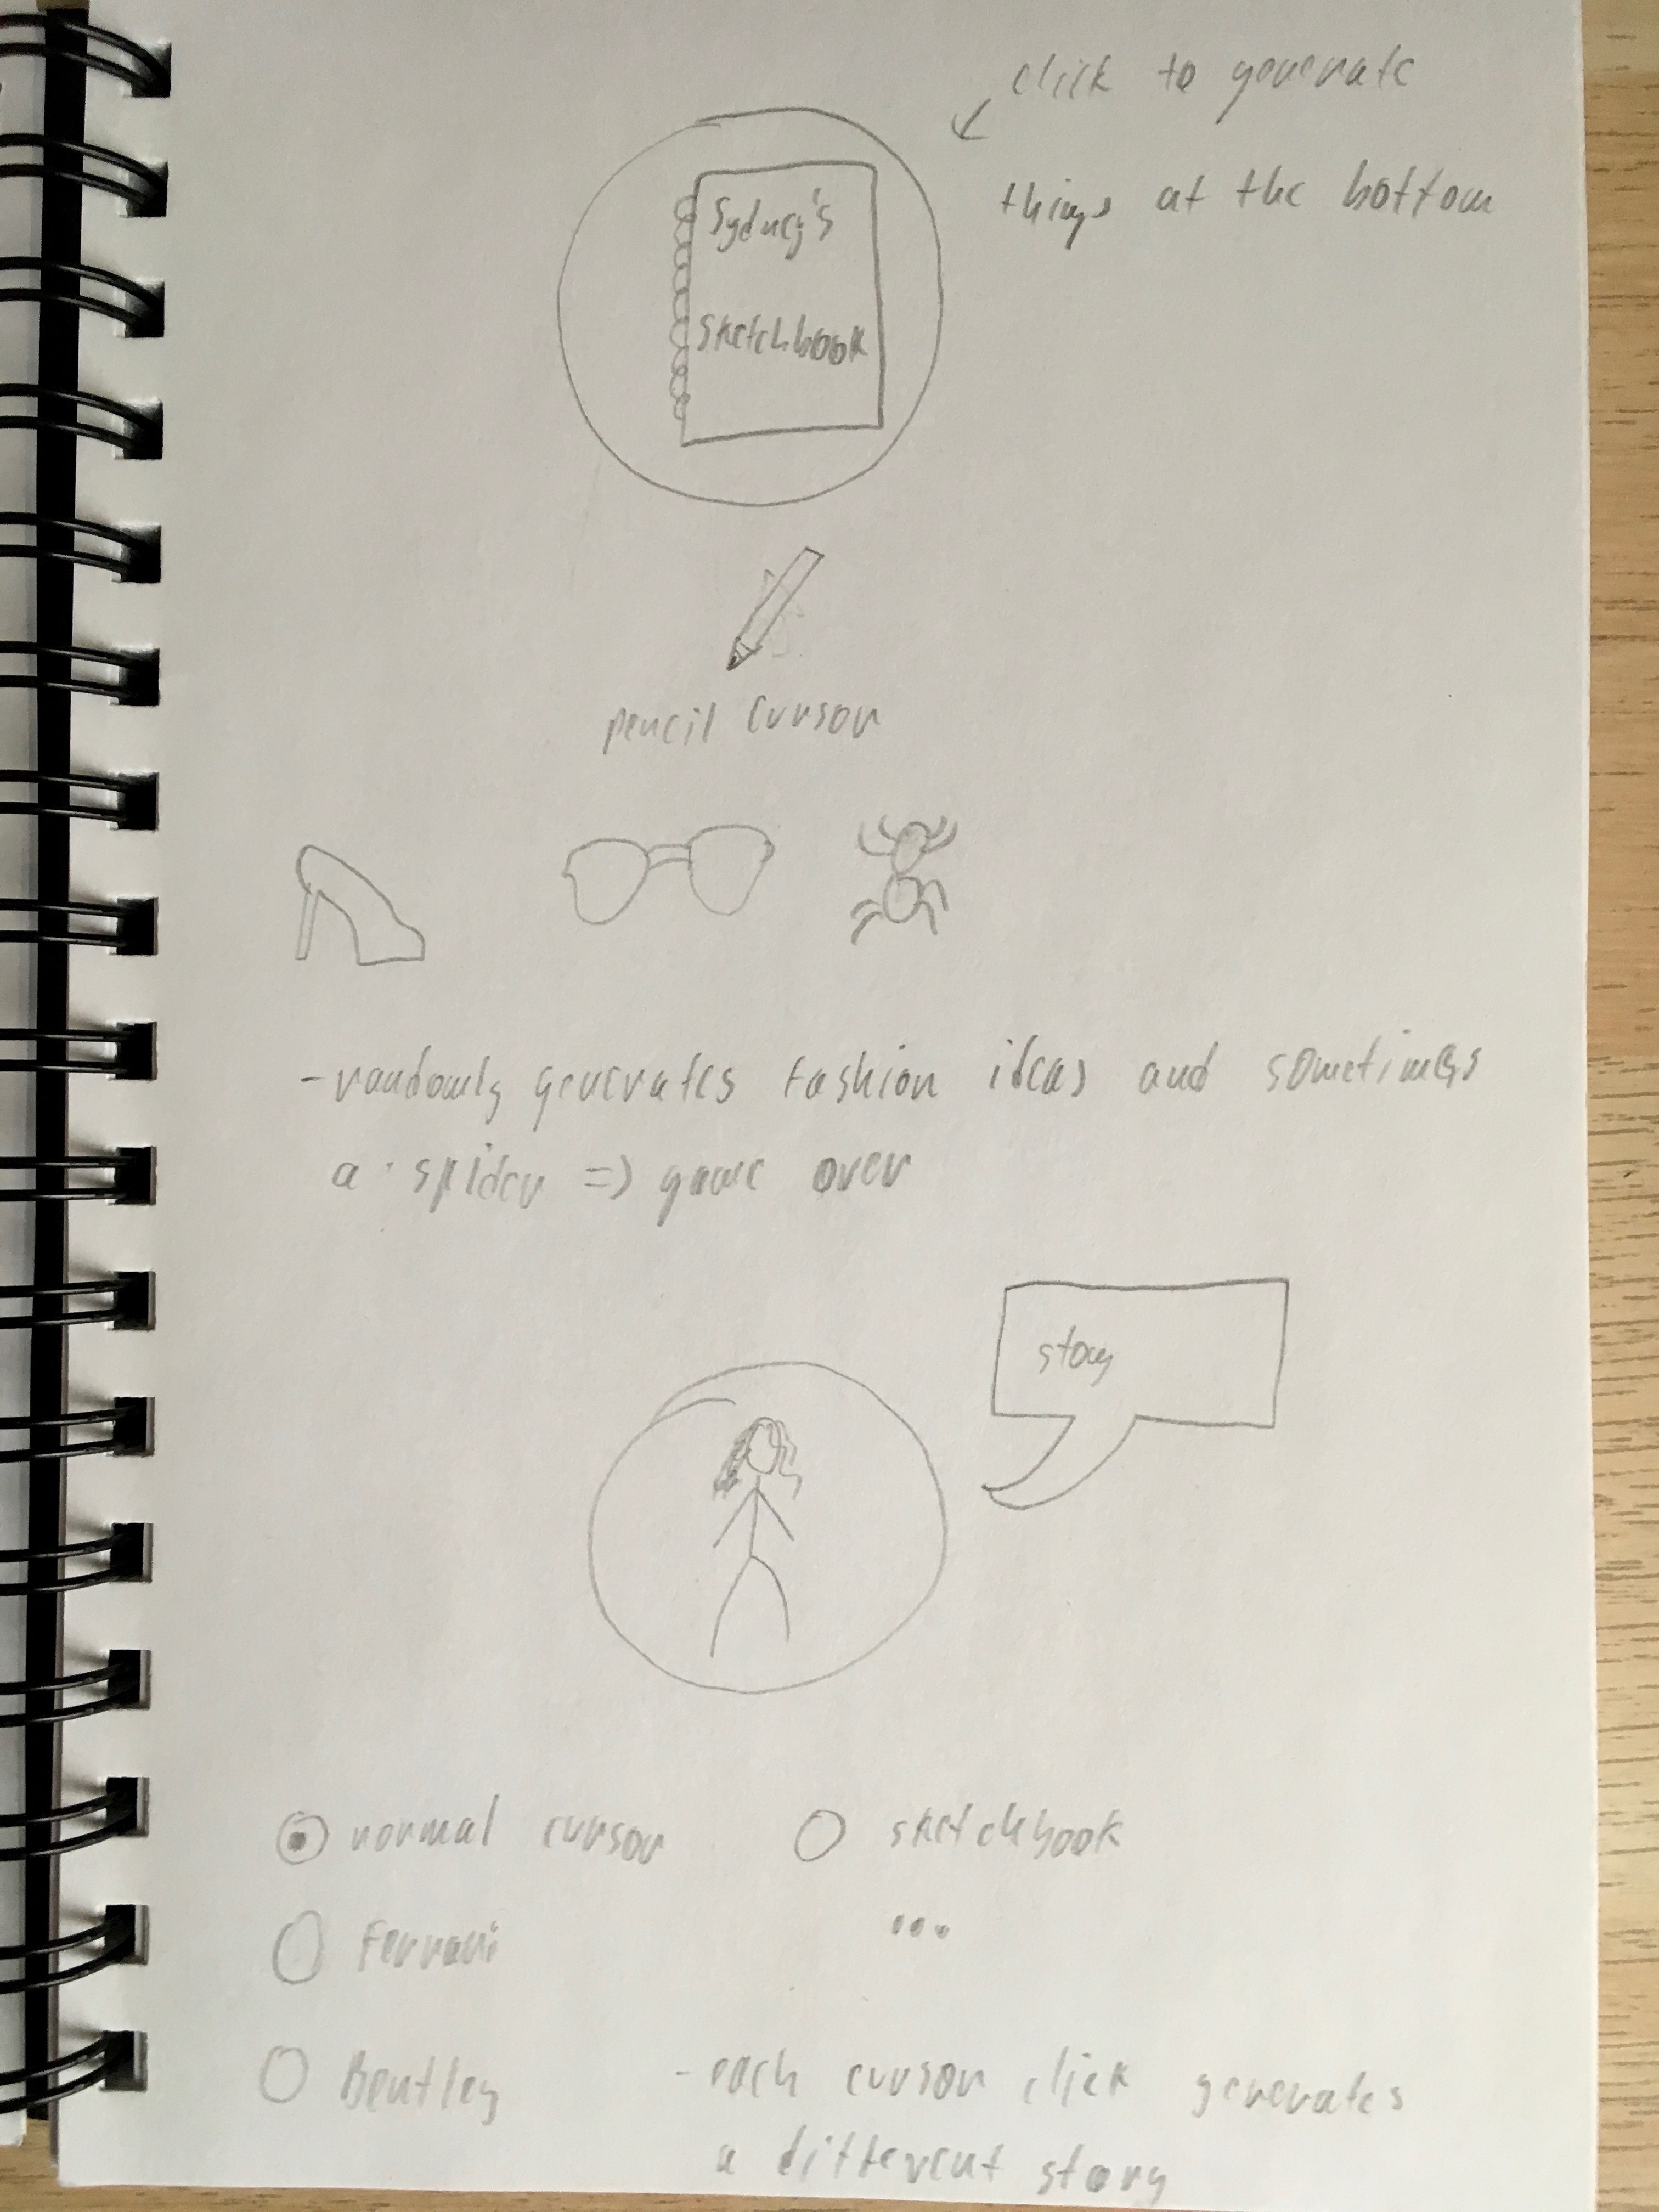 click to generate
things at the bottom
Sydney's
Sketchbook
pencil cursor
-randomly generates fashion ideas and sometimes
a spider => game over
story
normal cursor
sketchbook
Ferrari
...
Bentley
-each cursor click generates
a different story